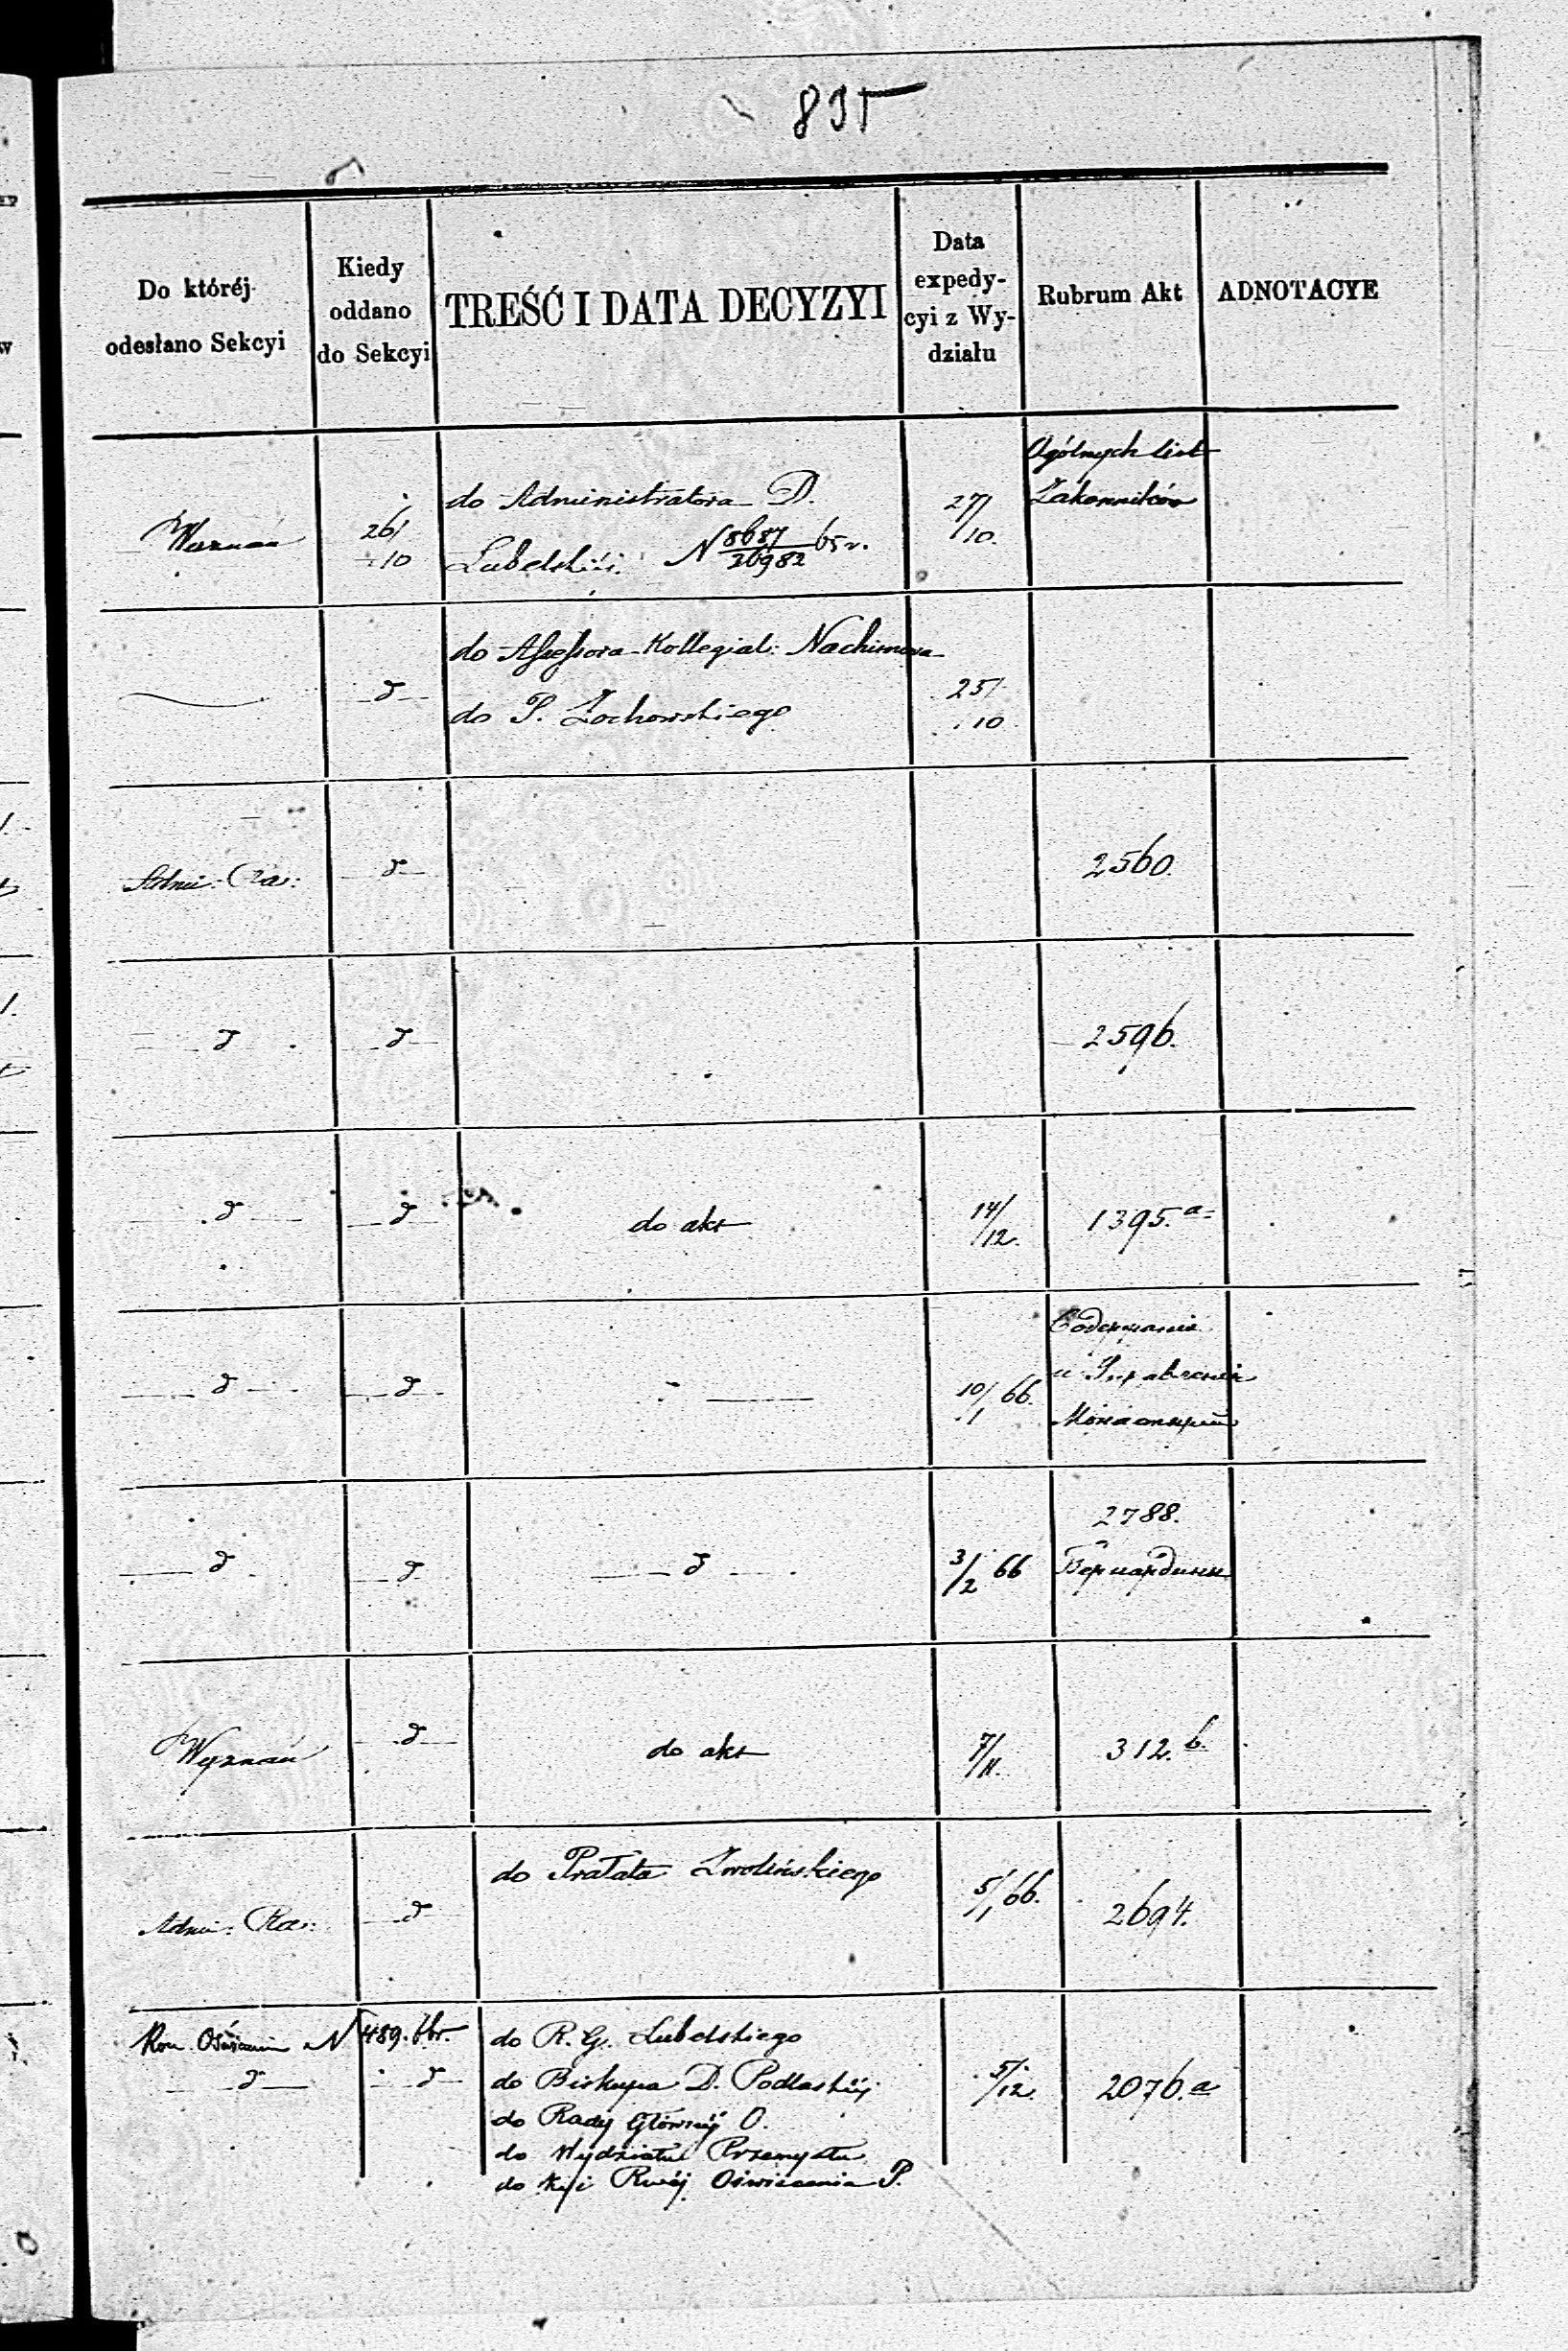 835
Do któréj
odesłano Sekcyi
Kiedy
oddano
do Sekcyi
TREŚĆ I DATA DECYZYI
Data
expedy-
cyi z Wy-
działu
Rubrum Akt
ADNOTACYE
Wyznań
26/
10
do Administratora D.
Lubelskiéj N 8687/26982 65 r.
27/
10.
Ogólnych list
Zakonników
d
do Assessora Kollegial: Nachimowa
do P. Żochowskiego
25/
10
Admi: Ra:
d
2560.
d
d
2596.
d
d
do akt
14/
12.
1395.a
d
d
10/1 66.
Содержанія
и Управленія
Монастырей
d
d
d
3/2 66
2788.
Бернардины
Wyznań
d
do akt
7/
11.
312.b.
Admi: Ra:
d
do Prałata Zwolińskiego
5/1 66.
2694.
Kom. Oświecenia N 489.
d
d
do R. G. Lubelskiego
do Biskupa D. Podlaskiéj
do Rady Głównéj O.
do Wydziału Przemysłu
do Kssi Rząej Oświecenia P.
5/
12.
2076.a